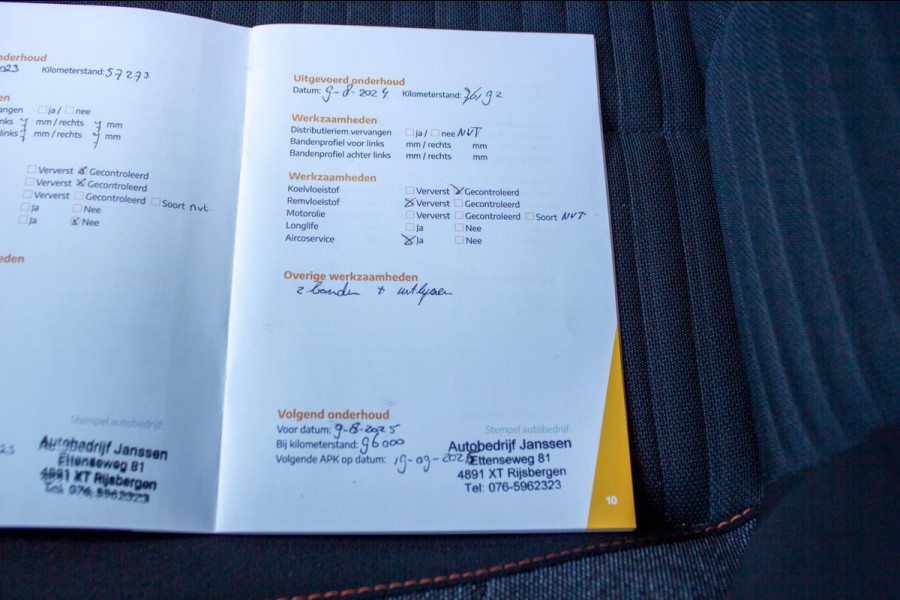 nderhoud
023 Kilometerstand: 57273
en
angen ja / nee
nks mm / rechts mm
links mm / rechts mm
Ververst Gecontroleerd
Ververst Gecontroleerd
Ververst Gecontroleerd Soort nvt.
Ja Nee
Ja Nee
eden
25
Stempel autobedrijf:
Autobedrijf Janssen
Ettenseweg 81
4891 XT Rijsbergen
Tel: 076-5962323
Uitgevoerd onderhoud
Datum: 9-8-2024 Kilometerstand:
Werkzaamheden
Distributieriem vervangen ja / nee NVT
Bandenprofiel voor links mm / rechts mm
Bandenprofiel achter links mm / rechts mm
Werkzaamheden
Koelvloeistof Ververst Gecontroleerd
Remvloeistof Ververst Gecontroleerd
Motorolie Ververst Gecontroleerd Soort NVT
Longlife Ja Nee
Aircoservice Ja Nee
Overige werkzaamheden
2 banden + uitlijnen
Volgend onderhoud
Voor datum: 9-8-2025
Bij kilometerstand: 96000
Volgende APK op datum:
Stempel autobedrijf:
Autobedrijf Janssen
Ettenseweg 81
4891 XT Rijsbergen
Tel: 076-5962323
10